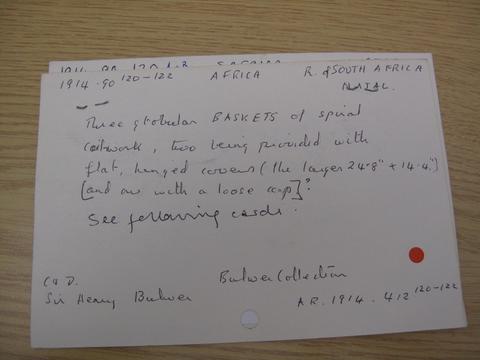 1914.90 120-122 AFRICA R. of SOUTH AFRICA
NATAL.
Three globular BASKETS of spiral
coilwork, two being provided with
flat, hinged covers (the larger 24·8" × 14·4")
[and one with a loose cap]?
See following cards.
Coll.
Sir Henry Bulwer Bulwer Collection
A.R. 1914. 412 120-122